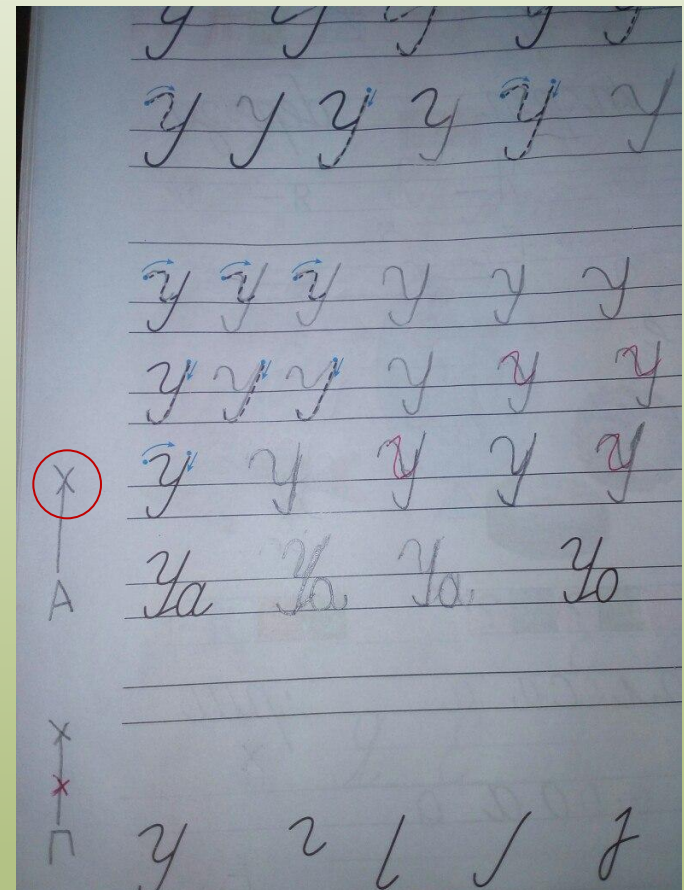 У У У У У
У У У У У У
У У У У У У
У У У У У У
У У У У У
Уа Уа Уа Уо
А
П
У